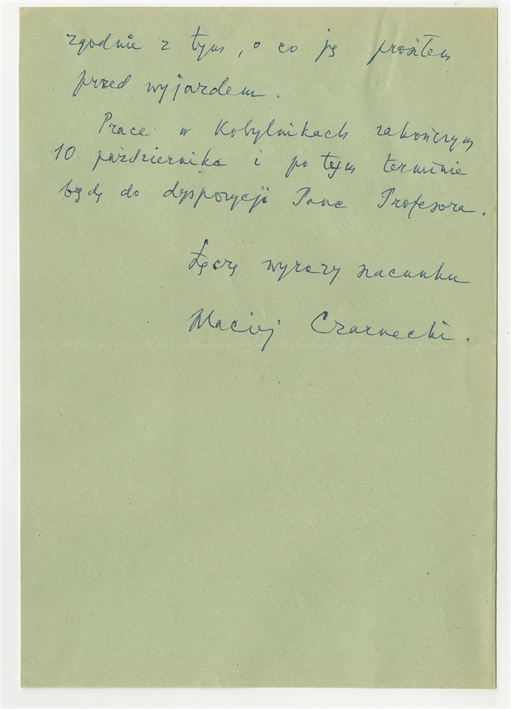 zgodnie z tym, o co ją prosiłem
przed wyjazdem.
Prace w Kobylnikach zakończym
10 października i po tym terminie
będę do dyspozycji Pana Profesora.
Łączę wyrazy szacunku
Maciej Czarnecki.